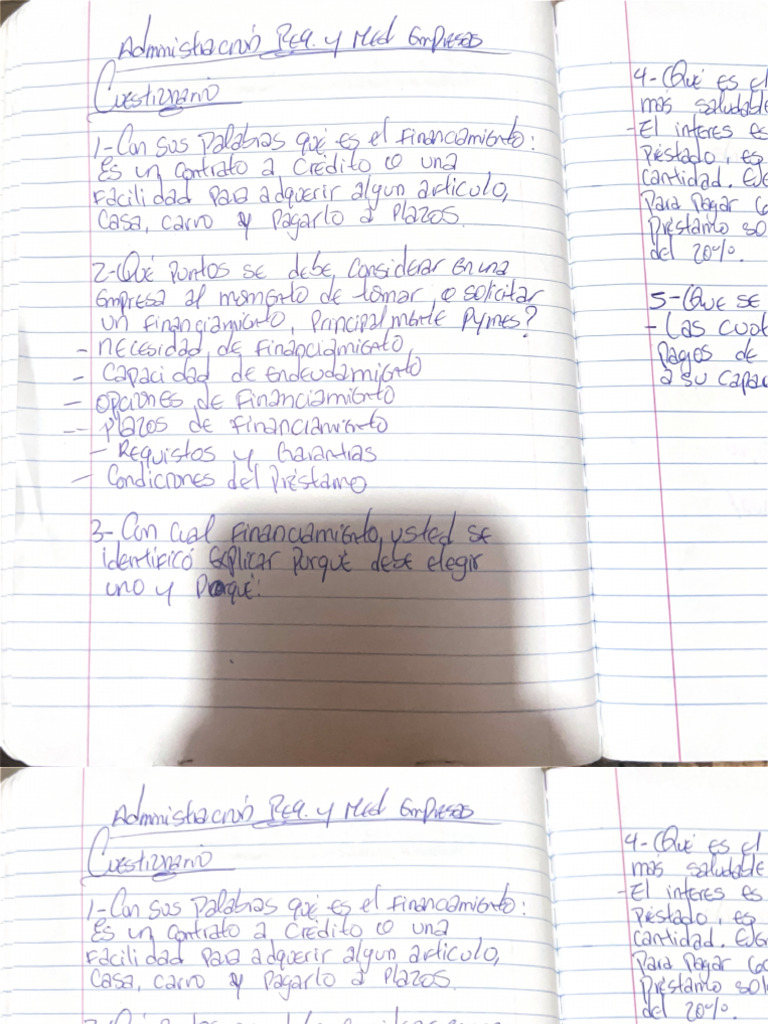 Administración Peq. y Med Empresas
Cuestionario
1-Con sus palabras qué es el financiamiento:
Es un contrato a crédito o una
facilidad para adquerir algun articulo,
casa, carro y pagarlo a plazos.
2-Qué puntos se debe, considerar en una
empresa al momento de tomar, o solicitar
un financiamiento, principalmente Pymes?
- necesidad de financiamiento,
- Capacidad de endeudamiento
- opciones de financiamiento
- plazos de financiamiento
- Requistos y Garantias
- Condiciones del Préstamo
3-Con cual financiamiento, usted se
identificó explicar porqué debe elegir
uno y Porqué:
4-Qué es el
más saludable
-El interes es
préstado, es
cantidad. Eje
Para pagar 60
Préstamo sol
del 20%.
5-Que se
- Las cuot
pagos de
a su capac
Administración Peq. y Med Empresas
Cuestionario
1-Con sus palabras qué es el financiamiento:
Es un contrato a crédito o una
facilidad para adquerir algun articulo,
casa, carro y pagarlo a plazos.
4-Qué es el
más saludable
-El interes es
préstado, es
cantidad. Eje
Para pagar 60
Préstamo sol
del 20%.